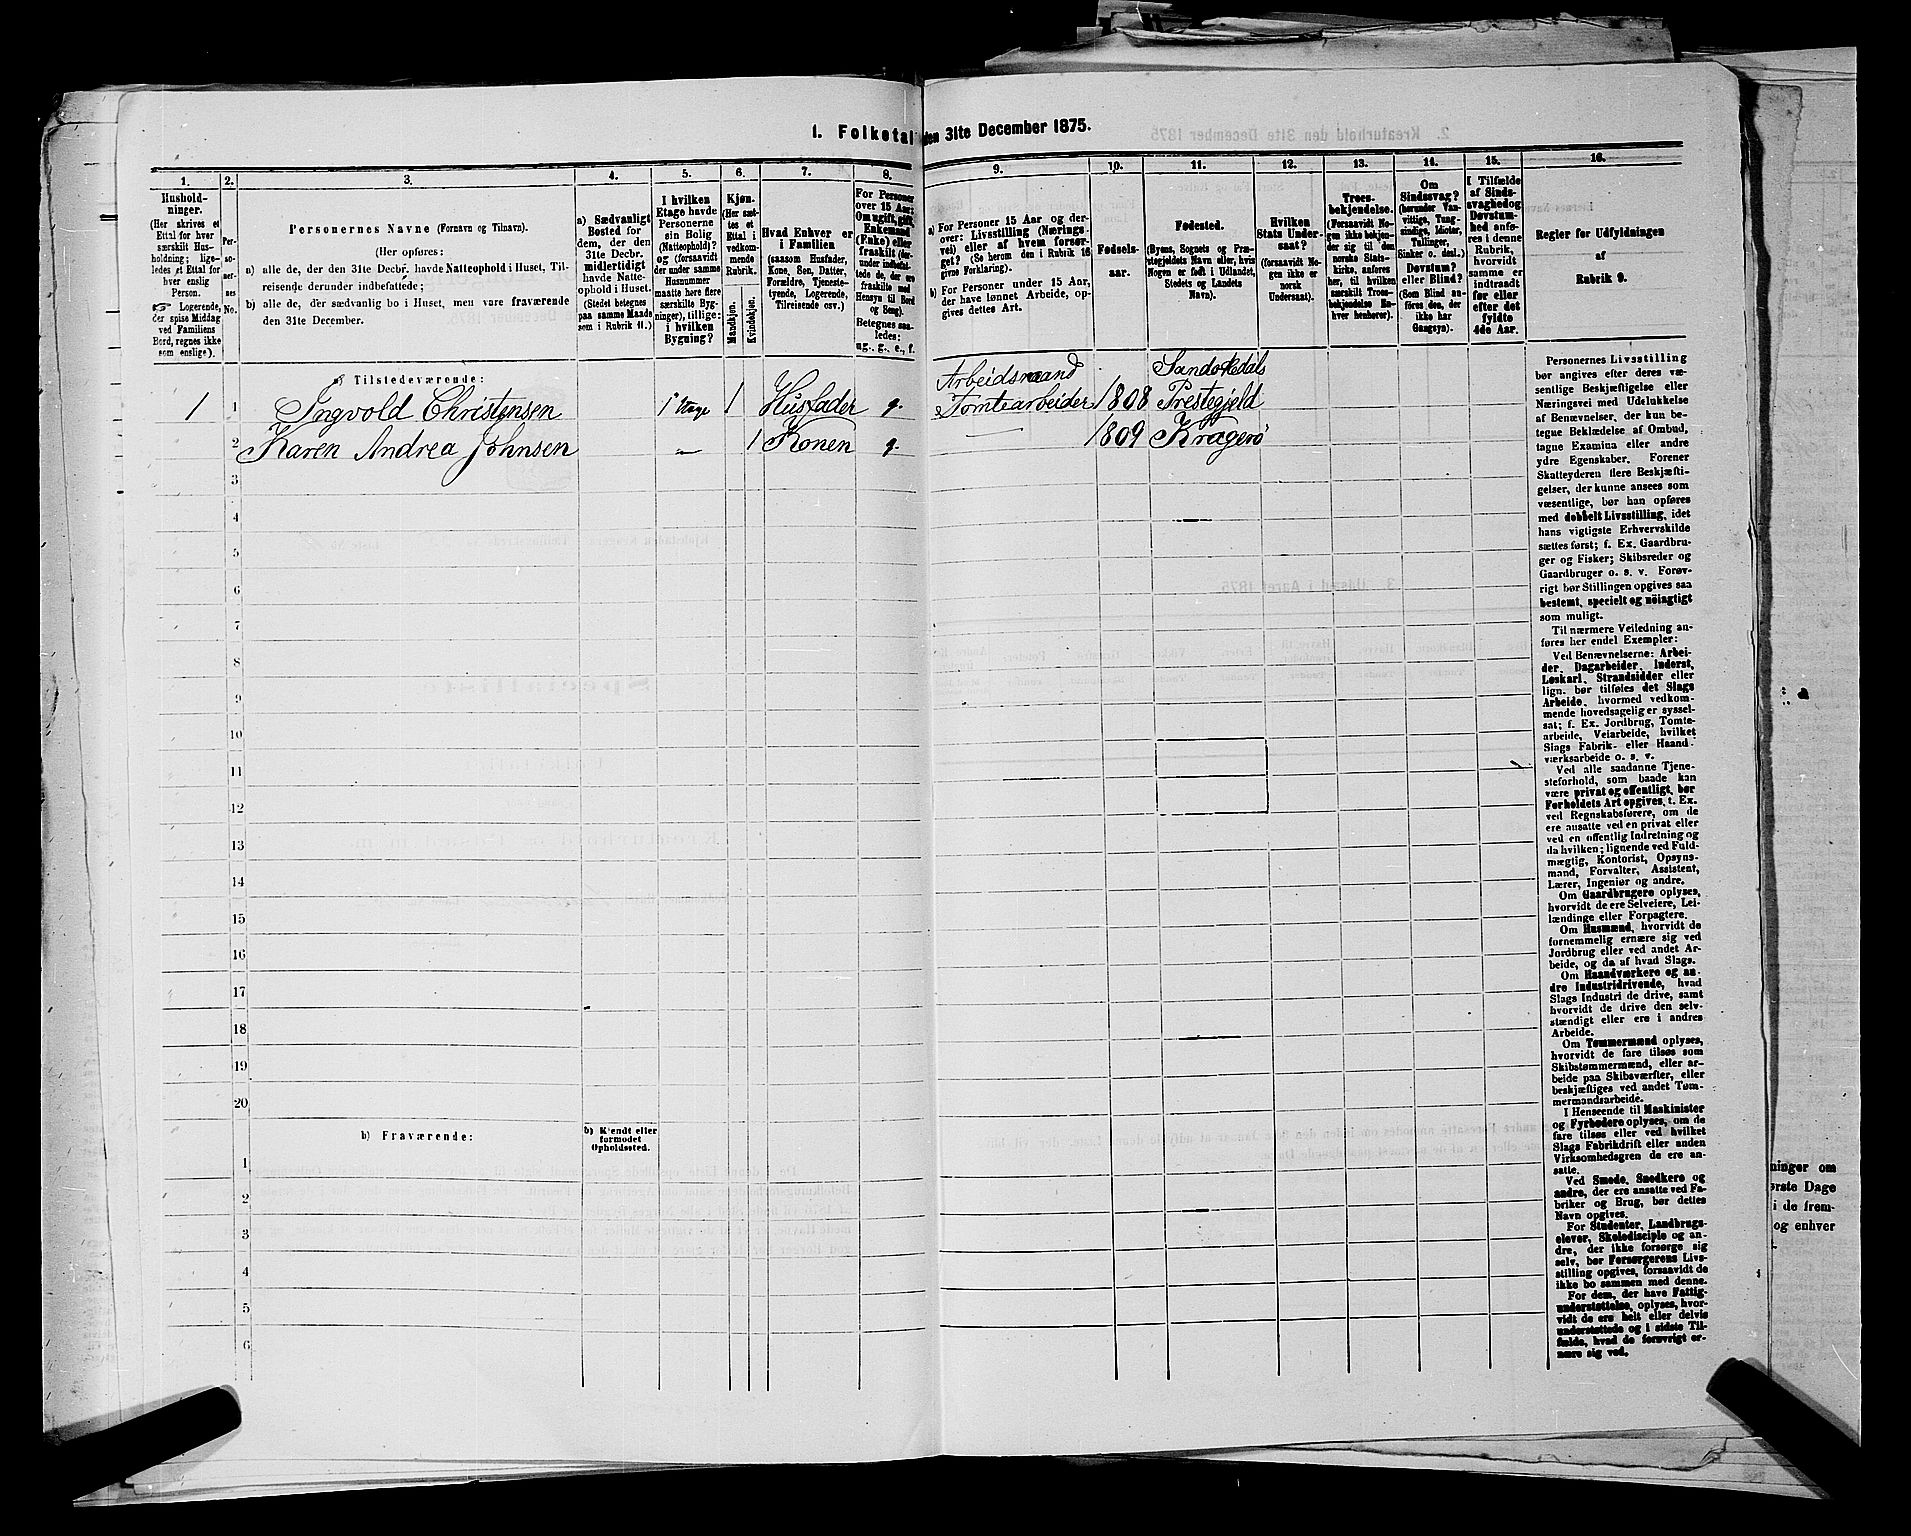 1. Folketal den 31te December 1875.
1.
2.
3.
4.
5.
6.
7.
8.
9.
10.
11.
12.
13.
14.
15.
16.
Hushold-
ninger.
(Her skrives et
Ettal for hver
særskilt Hus-
holdning; lige-
ledes et Ettal for
hver enslig
Person.
☞ Logerende,
der spise Middag
ved Familiens
Bord, regnes ikke
som enslige).
Per-
so-
ner-
nes
No.
Personernes Navne (Fornavn og Tilnavn).
(Her opføres:
a) alle de, der den 31te Decbr. havde Natteophold i Huset, Til-
reisende derunder indbefattede;
b) alle de, der sædvanlig bo i Huset, men vare fraværende
den 31te December.
a) Sædvanligt
Bosted for
dem, der den
31te Decbr.
midlertidigt
havde Natte-
ophold i Huset.
(Stedet betegnes
paa samme Maade
som i Rubrik 11.)
I hvilken
Etage havde
Personerne
sin Bolig
(Natteophold)?
og (forsaavidt
der under samme
Husnummer
maatte høre flere
særskilte Byg-
ninger), tillige:
i hvilken
Bygning?
Kjøn.
(Her sæt-
tes et
Ettal i
vedkom-
mende
Rubrik.
Mandkjøn.
Kvindekjøn.
Hvad Enhver er
i Familien
(saasom Husfader,
Kone, Søn, Datter,
Forældre, Tjeneste-
tyende, Logerende,
Tilreisende osv.)
For Personer
over 15 Aar:
Om ugift, gift,
Enkemand
(Enke) eller
fraskilt (der-
under indbefat-
tede de, der ere
fraskilte med
Hensyn til Bord
og Seng).
Betegnes saa-
ledes:
ug., g., e., f.
a) For Personer 15 Aar og der-
over: Livsstilling (Nærings-
vei) eller af hvem forsør-
get? (Se herom den i Rubrik 16
givne Forklaring).
b) For Personer under 15 Aar,
der have lønnet Arbeide, op-
gives dettes Art.
Fødsels-
aar.
Fødested.
(Byens, Sognets og Præ-
stegjeldets Navn eller, hvis
Nogen er født i Udlandet,
Stedets og Landets
Navn).
Hvilken
Stats Under-
saat?
(forsaavidt No-
gen ikke er
norsk
Undersaat).
Troes-
bekjendelse.
(Forsaavidt No-
gen ikke bekjen-
der sig til den
norske Stats-
kirke, anføres
her, til hvilken
særskilt Troes-
bekjendelse En-
hver henhører).
Om
Sindssvag?
(herunder Van-
vittige, Tung-
sindige, Idioter,
Tullinger,
Sinker o. desl.)
Døvstum?
eller Blind?
(Som Blind an-
føres den, der
ikke har
Gangsyn).
I Tilfælde
af Sinds-
svaghed og
Døvstum-
hed anfø-
res i denne
Rubrik,
hvorvidt
samme er
indtraadt
før eller
efter det
fyldte
4de Aar.
Regler for Udfyldningen
af
Rubrik 9.
a) Tilstedeværende:
1 1 Ingvold Christensen 1 Etage 1 Husfader g. Arbeidsmand
Tomtearbeider 1808 Sandøkedals
Prestegjeld
2 Karen Andrea Johnsen — 1 Konen g. — 1809 Kragerø
3
4
5
6
7
8
9
10
11
12
13
14
15
16
17
18
19
20
b) Fraværende:
b) Kjendt eller
formodet
Opholdssted.
1
2
3
4
5
6
Personernes Livsstilling
bør angives efter deres væ-
sentlige Beskjæftigelse eller
Næringsvei med Udelukkelse
af Benævnelser, der kun be-
tegne Beklædelse af Ombud,
tagne Examina eller andre
ydre Egenskaber. Forener
Skatteyderen flere Beskjæfti-
gelser, der kunne ansees som
væsentlige, bør han opføres
med dobbelt Livsstilling, idet
hans vigtigste Erhvervskilde
sættes først; f. Ex. Gaardbru-
ger og Fisker; Skibsreder og
Gaardbruger o. s. v. Forøv-
rigt bør Stillingen opgives saa
bestemt, specielt og nöiagtigt
som muligt.
Til nærmere Veiledning an-
føres her endel Exempler:
Ved Benævnelserne: Arbei-
der, Dagarbeider, Inderst,
Løskarl, Strandsidder eller
lign. bør tilføies det Slags
Arbeide, hvormed vedkom-
mende hovedsagelig er syssel-
sat; f. Ex. Jordbrug, Tomte-
arbeide, Veiarbeide, hvilket
Slags Fabrik- eller Haand-
værksarbeide o. s. v.
Ved alle saadanne Tjene-
steforhold, som baade kan
være privat og offentligt, bør
Forholdets Art opgives, t. Ex.
ved Regnskabsførere, om de
ere ansatte ved en privat eller
ved en offentlig Indretning og
da hvilken; lignende ved Fuld-
mægtig, Kontorist, Opsyns-
mand, Forvalter, Assistent,
Lærer, Ingeniør og andre.
Om Gaardbrugere oplyses,
hvorvidt de ere Selveiere, Lei-
lændinge eller Forpagtere.
Om Husmænd, hvorvidt de
fornemmelig ernære sig ved
Jordbrug eller ved andet Ar-
beide, og da af hvad Slags.
Om Haandværkere og an-
dre Industridrivende, hvad
Slags Industri de drive, samt
hvorvidt de drive den selv-
stændigt eller ere i andres
Arbeide.
Om Tømmermænd oplyses,
hvorvidt de fare tilsøs som
Skibstømmermænd, eller ar-
beide paa Skibsværfter, eller
beskjæftiges ved andet Tøm-
mermandsarbeide.
I Henseende til Maskinister
og Fyrbødere oplyses, om de
fare tilsøs eller ved hvilket
Slags Fabrikdrift eller anden
Virksomhedsgren de ere an-
satte.
Ved Smede, Snedkere og
andre, der ere ansatte ved Fa-
briker og Brug, bør dettes
Navn opgives.
For Studenter, Landbrugs-
elever, Skoledisciple og an-
dre, der ikke forsørge sig
selv, bør Forsørgerens Livs-
stilling opgives, forsaavidt de
ikke bo sammen med denne.
For dem, der have Fattig-
understøttelse, oplyses, hvor-
vidt de ere helt eller delvis
understøttede og i sidste Til-
fælde, hvad de forøvrigt er-
nære sig ved.
ninger om
ørste Dage
i de frem-
og enhver